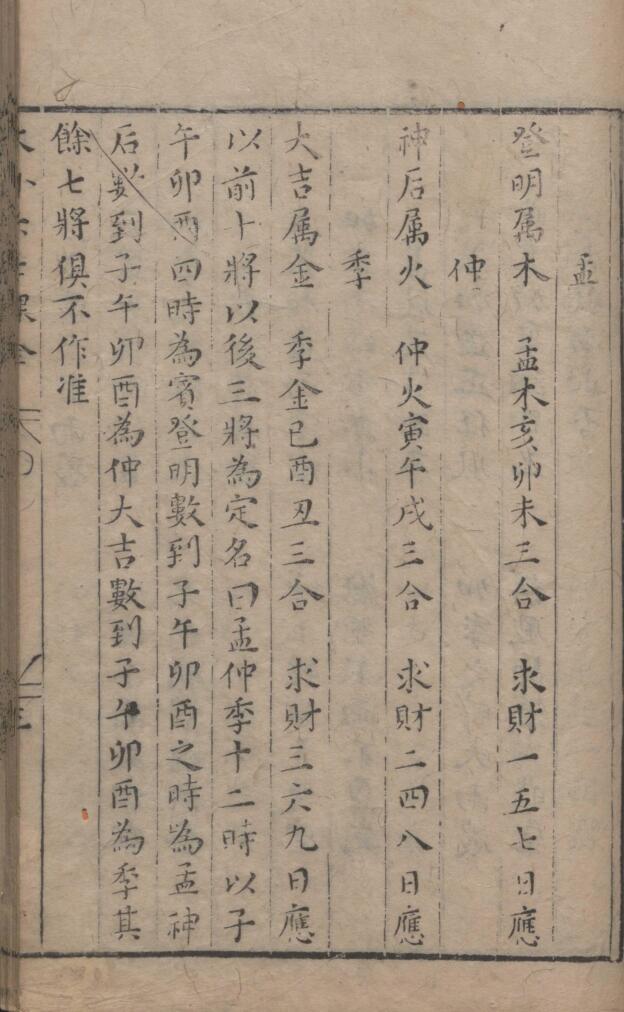 孟
登明属木　孟木亥卯未三合　求財一五七日應
仲
神后属火　仲火寅午戌三合　求財二四八日應
季
大吉属金　季金巳酉丑三合　求財三六九日應
以前十將以後三將為定名曰孟仲季十二時以子
午卯酉四時為賓登明數到子午卯酉之時為孟神
后数到子午卯酉為仲大吉數到子午卯酉為季其
餘七將俱不作准